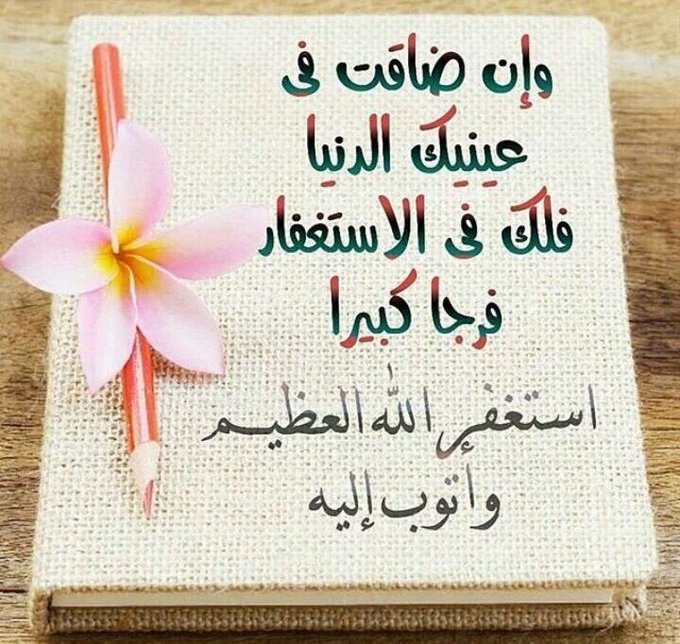 وإن ضاقَت فى
عينيك الدنيا
فلك فى الاستَغفار
فرجا كبيرا
استغفر الله العظيم
واتوب إليه